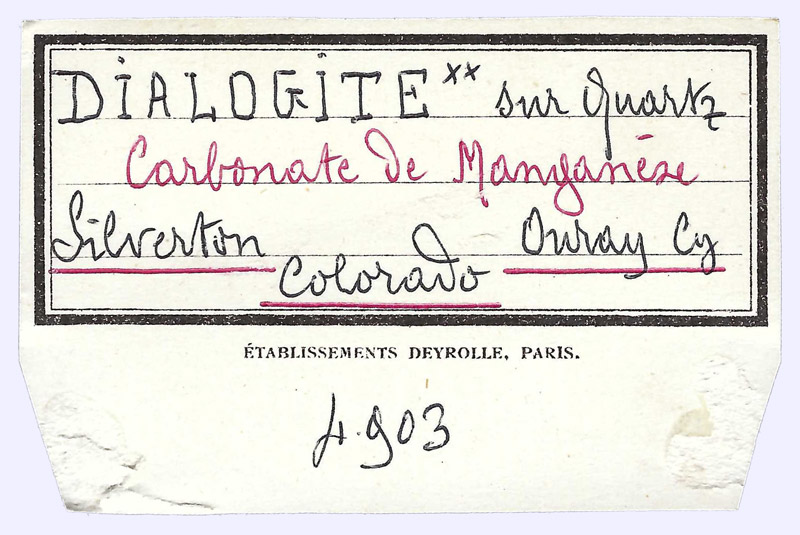 DIALOGITE xx sur Quartz
Carbonate de Manganèse
Silverton Ouray Cy
Colorado
ÉTABLISSEMENTS DEYROLLE, PARIS.
4.903